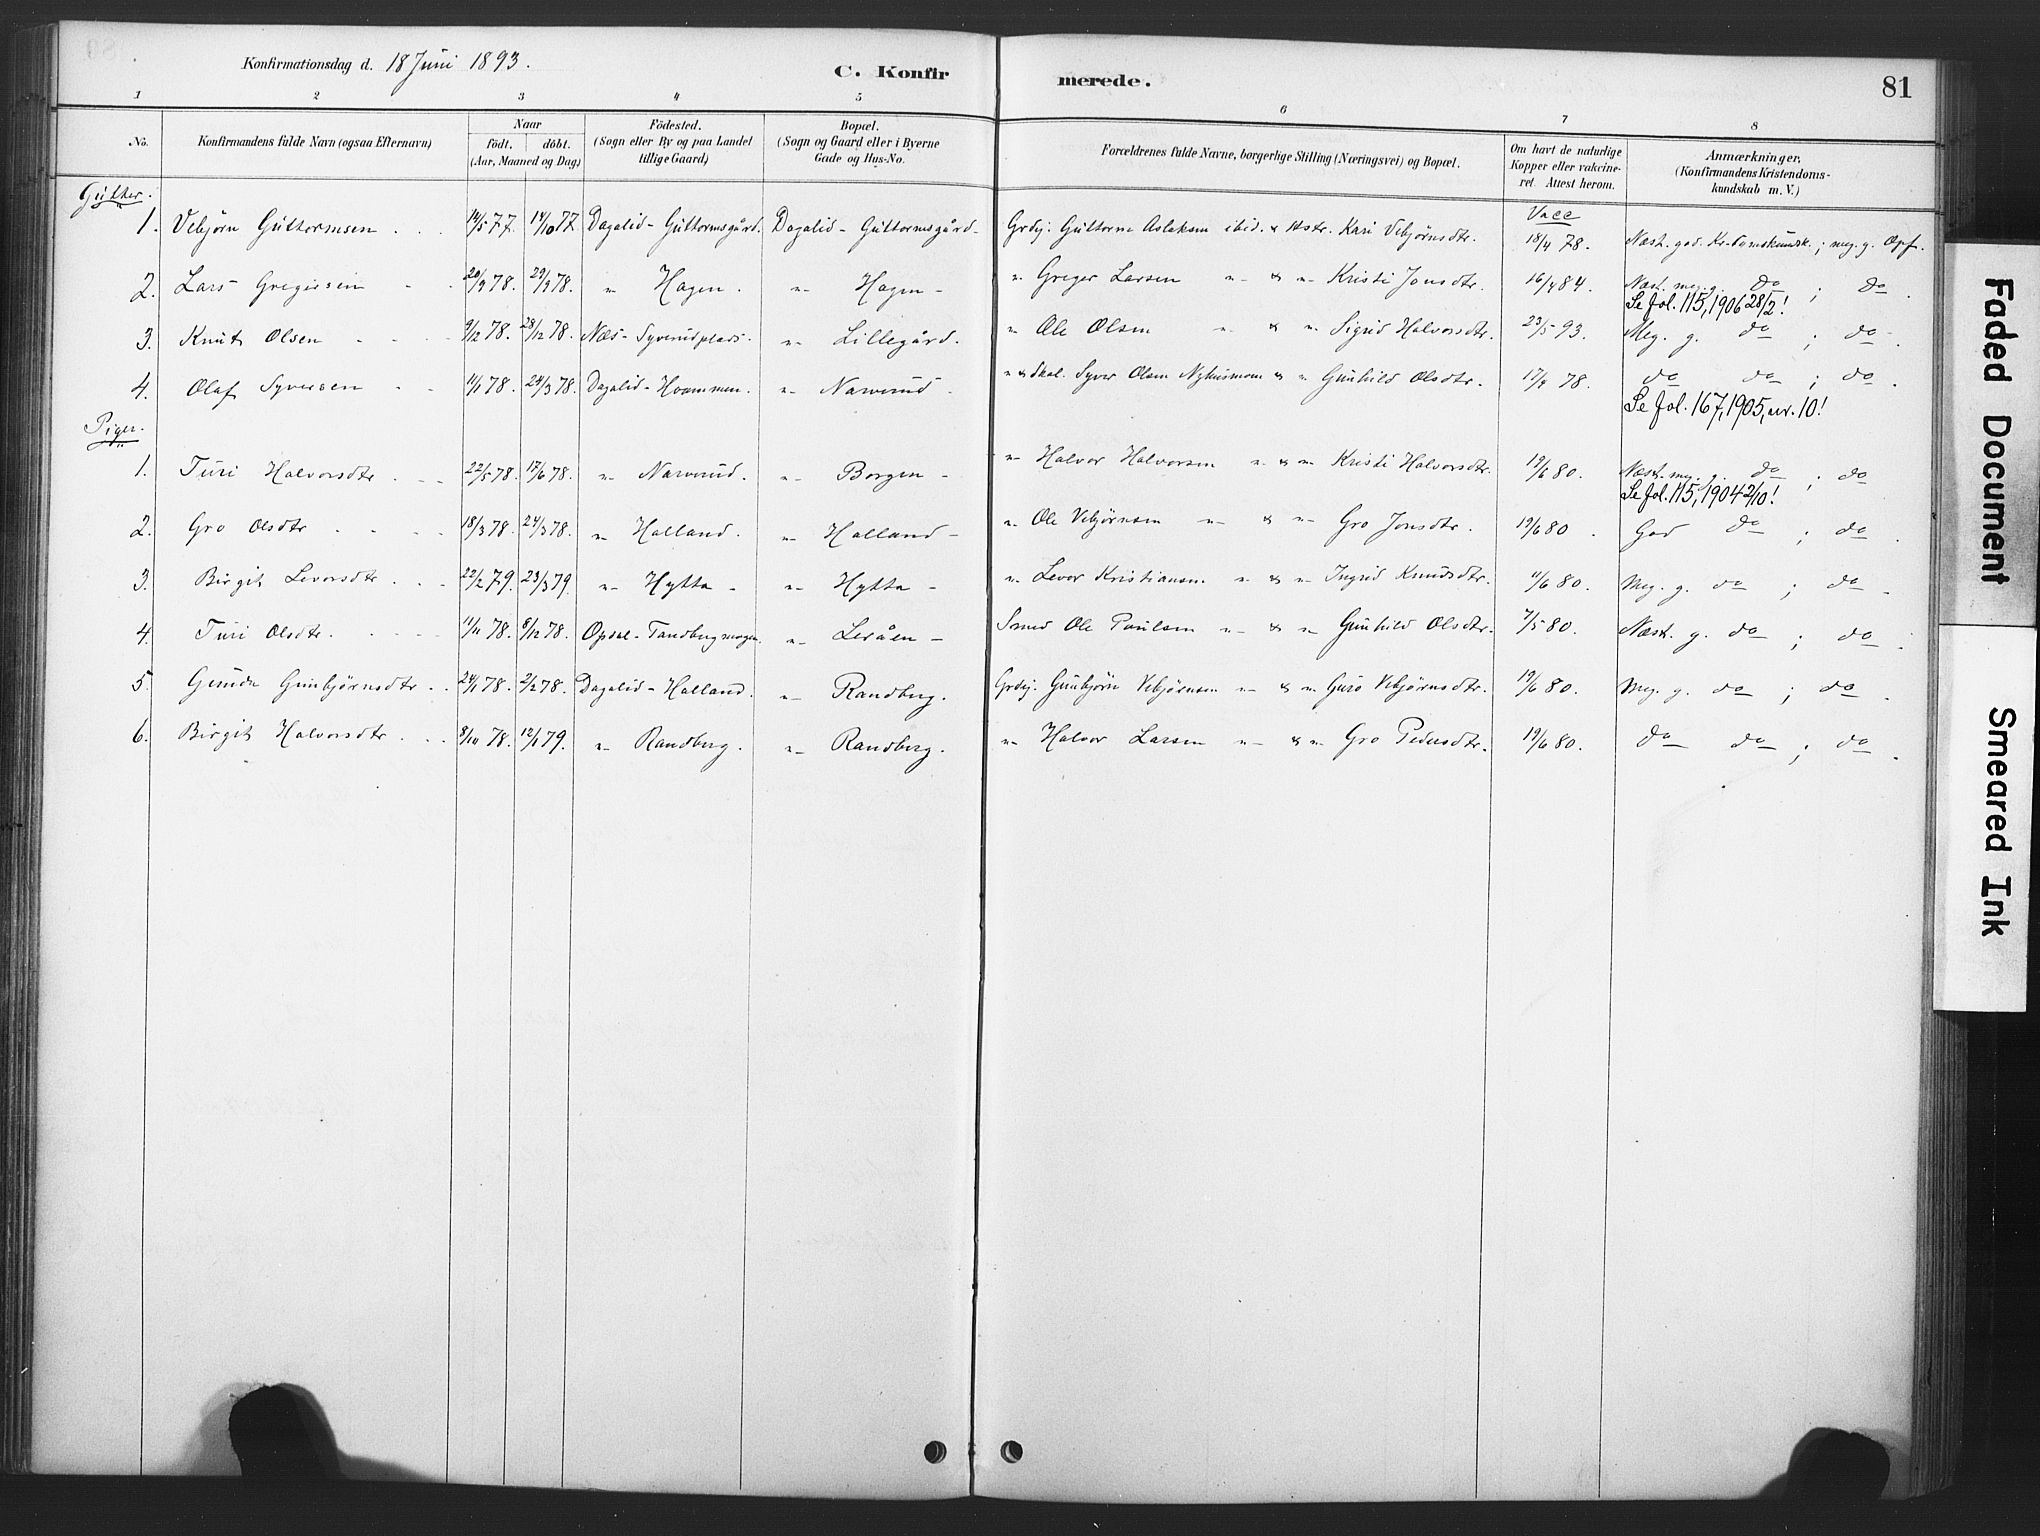 Konfirmationsdag d. 18 Juni 1893.
C. Konfirmerede.
81
1 2 3 4 5 6 7 8
No.
Konfirmandens fulde Navn (ogsaa Efternavn)
Naar
født. døbt.
(Aar, Maaned og Dag)
Fødested.
(Sogn eller By og paa Landet
tillige Gaard)
Bopæl.
(Sogn og Gaard eller i Byerne
Gade og Hus-No.
Forældrenes fulde Navne, borgerlige Stilling (Næringsvei) og Bopæl.
Om havt de naturlige
Kopper eller vakcine-
ret. Attest herom.
Anmærkninger,
(Konfirmandens Kristendoms-
kundskab m. V.)
Gutter.
Vacc
1. Vebjørn Guttormsen 14/5 77. 14/10 77. Dagalid - Guttormsgård. Dagalid - Guttormsgård - Grdbj. Guttorm Aslaksen ibid. & Hstr. Kari Vebjørnsdtr. 18/4 78. Næst. god. Kr-domskundsk.; meg. g. Opf.
2. Lars Gregersen 20/9 78. 29/9 78. " Hagen. " Hagen - " Greger Larsen " & " Kristi Jonsdtr. 16/4 84. Næst. meg. g. do ; do.
Se fol. 115, 1906 28/2!
3. Knut Olsen 9/12 78. 28/12 78. Næs - Syverudplads. " Lillegård. " Ole Olsen " & " Sigrid Halvorsdtr. 23/5 93. Meg. g. do ; do.
4. Olaf Syversen 11/1 78. 24/3 78. Dagalid - Hvammen. " Narverud. " & Skol. Syver Olsen Nyhusmoen & " Gunhild Olsdtr. 17/9 78. do do ; do.
Se fol. 167, 1905, nr. 10!
Piger.
1. Turi Halvorsdtr 22/5 78. 17/6 78. " Narverud. " Borgen - " Halvor Halvorsen " & " Kristi Halvorsdtr. 19/6 80. Næst. meg. g. do ; do
Se fol. 115, 1904 2/10!
2. Gro Olsdtr 18/3 78. 24/3 78. " Halland. " Halland - " Ole Vebjørnsen " & " Gro Jonsdtr. 19/6 80. God do ; do.
3. Birgit Levorsdtr 22/2 79. 23/3 79. " Hytta - " Hytta - " Levor Kristiansen " & " Ingrid Knudsdtr. 11/6 80. Meg. g. do ; do.
4. Turi Olsdtr. 11/11 78. 8/12 78. Opdal - Tandbergmogen. " Leråen - Smed Ole Paulsen " & " Gunhild Olsdtr. 7/5 80. Næst. g. do ; do.
5. Gunda Gunbjørnsdtr. 24/1 78. 2/2 78. Dagalid - Halland. " Randberg. Grdbj. Gunbjørn Vebjørnsen " & " Guro Vebjørnsdtr. 19/6 80. Meg. g. do ; do.
6. Birgit Halvorsdtr 8/11 78. 12/1 79. " Randberg. " Randberg. " Halvor Larsen " & " Gro Pedersdtr. 19/6 80. do do ; do.
Faded Document
Smeared Ink